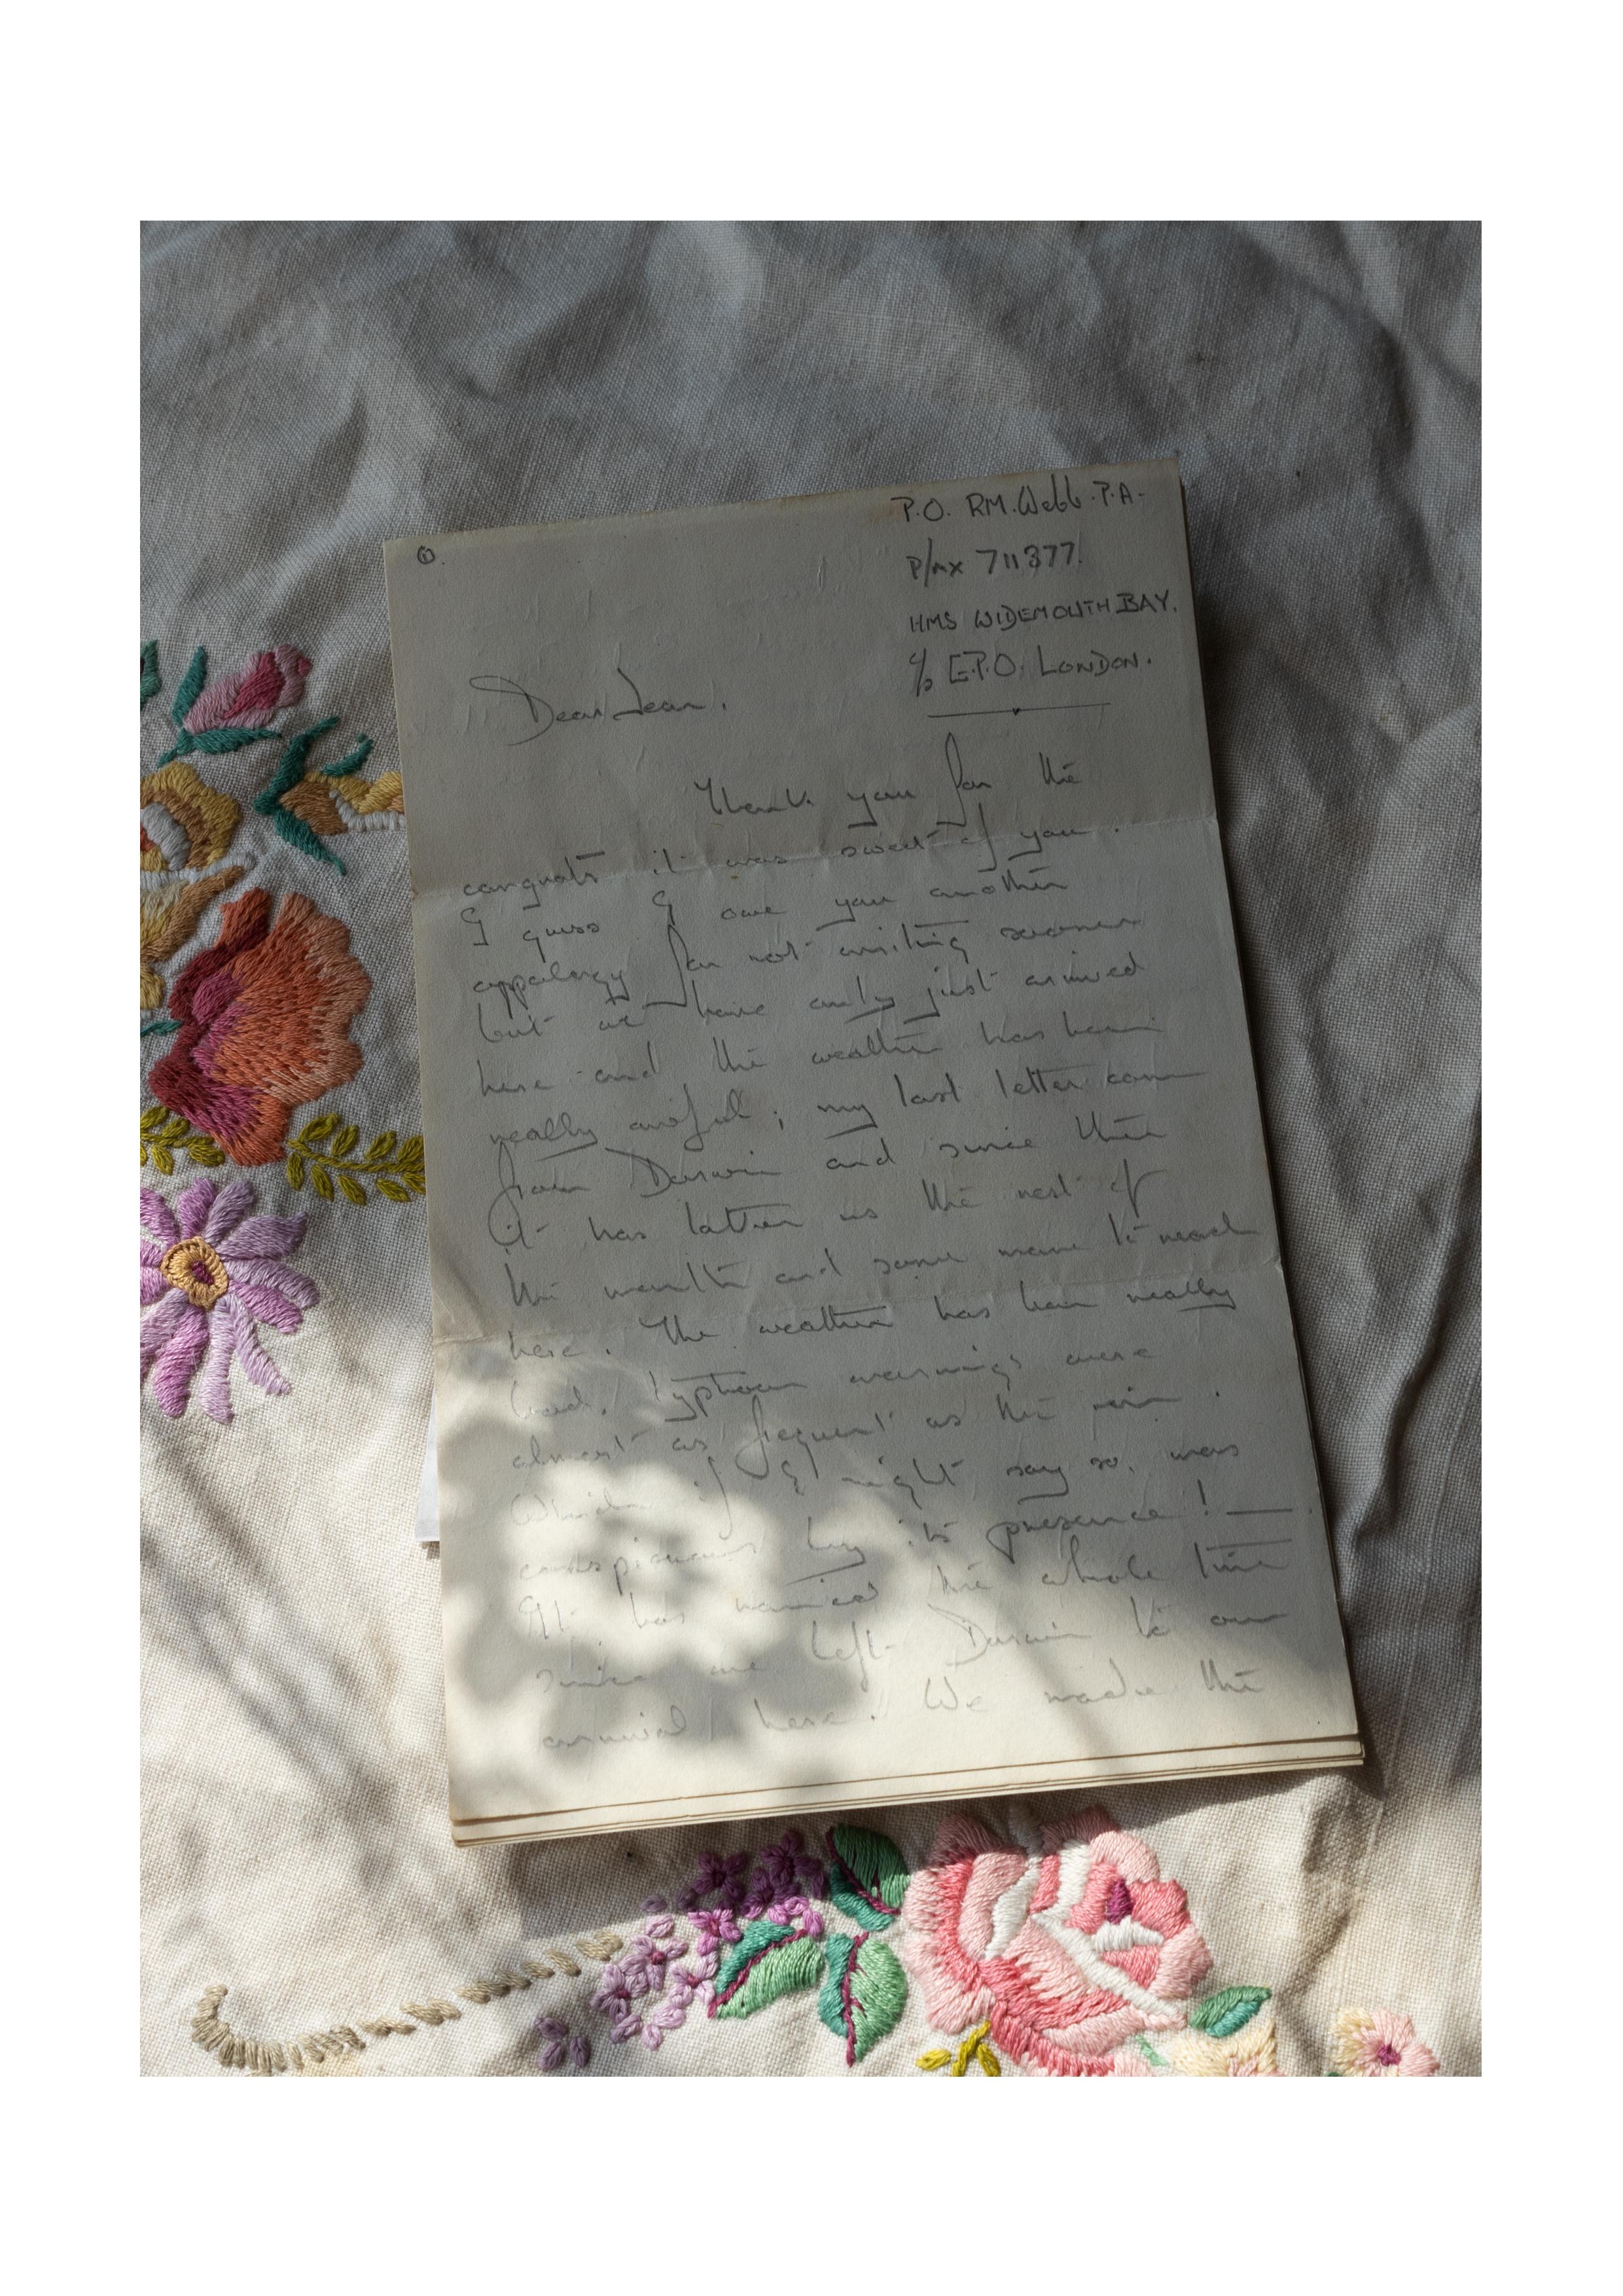 ①.
P.O. RM. Webb. P.A.
P/MX 711377.
HMS WIDEMOUTH BAY.
c/o G.P.O. LONDON.
Dear Jean,
Thank you for the
congrats it was sweet of you.
I guess I owe you another
appology for not writing sooner
but we have only just arrived
here and the weather has been
really awful; my last letter came
from Darwin and since then
it has taken us the rest of
the month and some more to reach
here. The weather has been really
bad, typhoon warnings were
almost as frequent as the rain.
Which if I might say so, was
conspicuous by its presence! —
It has rained the whole time
since we left Darwin to our
arrival here. We made the